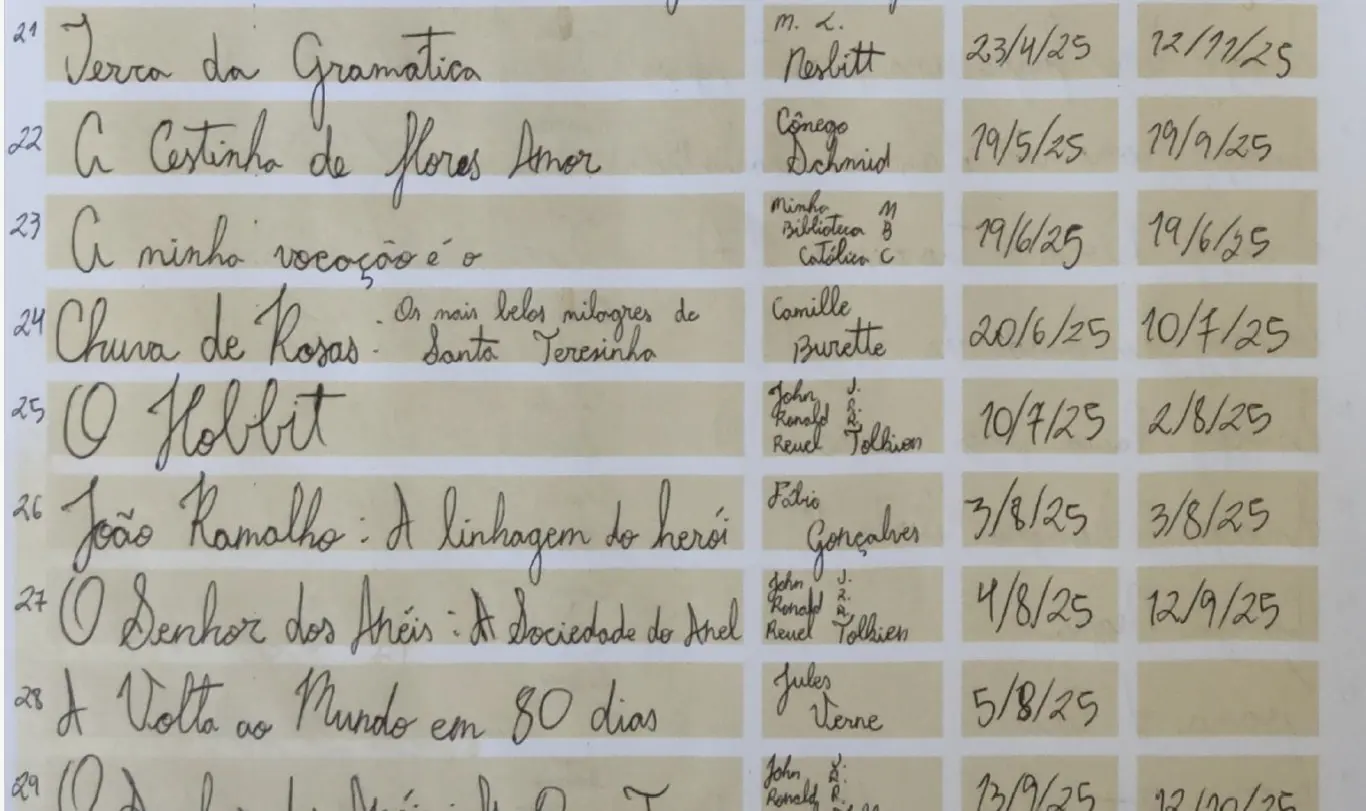 21 Terra da Gramática M. L. Nesbitt 23/4/25 12/11/25
22 A Cestinha de flores Amor Cônego Schmid 19/5/25 19/9/25
23 A minha vocação é o Minha Biblioteca Católica M B C 19/6/25 19/6/25
24 Chuva de Rosas: Os mais belos milagres de Santa Teresinha Camille Burette 20/6/25 10/7/25
25 O Hobbit John Ronald Reuel J. R. R. Tolkien 10/7/25 2/8/25
26 João Ramalho: A linhagem do herói Fábio Gonçalves 3/8/25 3/8/25
27 O Senhor dos Anéis: A Sociedade do Anel John Ronald Reuel J. R. R. Tolkien 4/8/25 12/9/25
28 A Volta ao Mundo em 80 dias Jules Verne 5/8/25
29 John Ronald J. R. 13/9/25 12/10/25